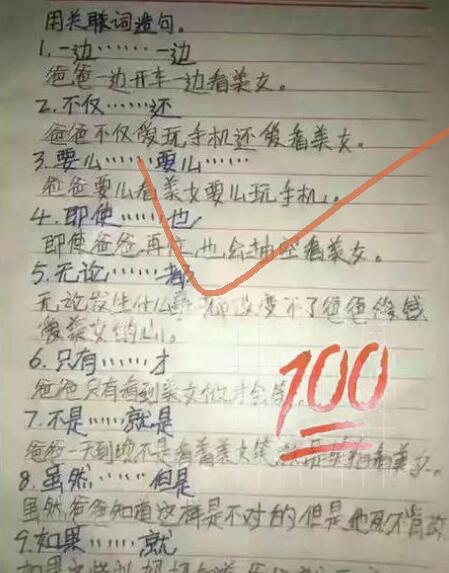 用关联词造句。
1.一边……一边
爸爸一边开车一边看美女。
2.不仅……还
爸爸不仅爱玩手机还爱看美女。
3.要么……要么……
爸爸要么看美女要么玩手机。
4.即使……也
即使爸爸再忙,也会抽空看美女。
5.无论……都
无论发生什么事都改变不了爸爸
爱美女的心。
6.只有……才
爸爸只有看到美女他才会笑
100
7.不是……就是
爸爸一天到晚不是看着美女笑,就是
8.虽然……但是
虽然爸爸知道这样是不对的但是他死不肯改
9.如果……就
如果